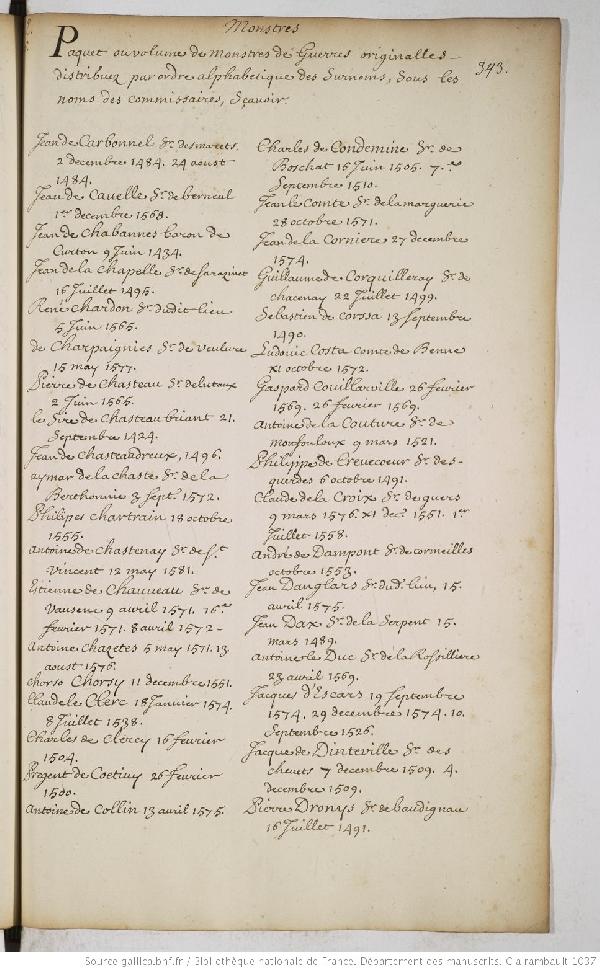 Monstres
Paquet ou volume de monstres de Guerres originalles
distribuez par ordre alphabetique des Surnoms, sous les
noms des commissaires, sçavoir.
343.
Jean de Carbonnel Sr. des marets
2 decembre 1484. 24 aoust
1484.
Jean de Cauelle Sr. de berneul
1er decembre 1568.
Jean de Chabannes baron de
Curton 9 Juin 1434.
Jean de la Chapelle Sr. de
16 Juillet 1495.
René chardon Sr. dudit lieu
5 Juin 1565.
de Charpaignies Sr. de
15 may 1577.
Pierre de Chasteau Sr.
2 Juin 1565.
le Sire de Chasteaubriant 21.
Septembre 1424.
Jean de Chasteaudreux, 1496.
aymar de la chaste Sr. de la
Berthonnie 3 Sept. 1572.
Philipes chartrain 18 octobre
1555.
antoine de Chastenay Sr. de St.
Vincent 12 may 1581.
Estienne de Chauueau Sr. de
Vausene 9 avril 1571. 16
fevrier 1571. 8 avril 1572 -
Antoine chazetes 5 may 1571. 13
aoust 1576.
chorso Chorsy 11 decembre 1551.
Claude le Clerc 18 Januier 1574.
8 Juillet 1538.
Charles de Clercy 16 fevrier
1504.
Pregent de Coetiuy 26 fevrier
1500.
Antoine de Collin 13 avril 1575.
Charles de Condemine Sr. de
Boschat 15 Juin 1505. 7.
Septembre 1510.
Jean le Comte Sr. de lamarguerie
28 octobre 1571.
Jean de la Corniere 27 decembre
1574.
Guillaume de Corguilleray Sr. de
chacenay 22 Juillet 1499.
Sebastien de corssa 13 Septembre
1490.
Ludouic Costa comte de Benne
XI octobre 1572.
Gaspard Couillarville 26 fevrier
1569. 26 fevrier 1569.
Antoine de la Couture Sr. de
monfouloux 9 mars 1521.
Philippe de Creuecoeur Sr. des-
querdes 6 octobre 1491.
Claude de la Croix Sr. de guers
9 mars 1576. XI dec. 1551. 1er
Juillet 1558.
André de Dampont Sr. de cormeilles
octobre 1553.
Jean Danglars Sr. dud. lieu, 15.
avril 1575.
Jean Dax Sr. de la Serpent 15.
mars 1489.
Antoine le Duc Sr. de la Rossilliere
23 avril 1569.
Jacques d'Escars 19 Septembre
1574. 29 decembre 1574. 10.
Septembre 1526.
Jacque de Dinteville Sr. des
chenets 7 decembre 1509. 4.
decembre 1509.
Pierre Dronys Sr. de baudignau
16 Juillet 1491.
Source gallica.bnf.fr / Bibliothèque nationale de France. Département des manuscrits. Clairambault 1037